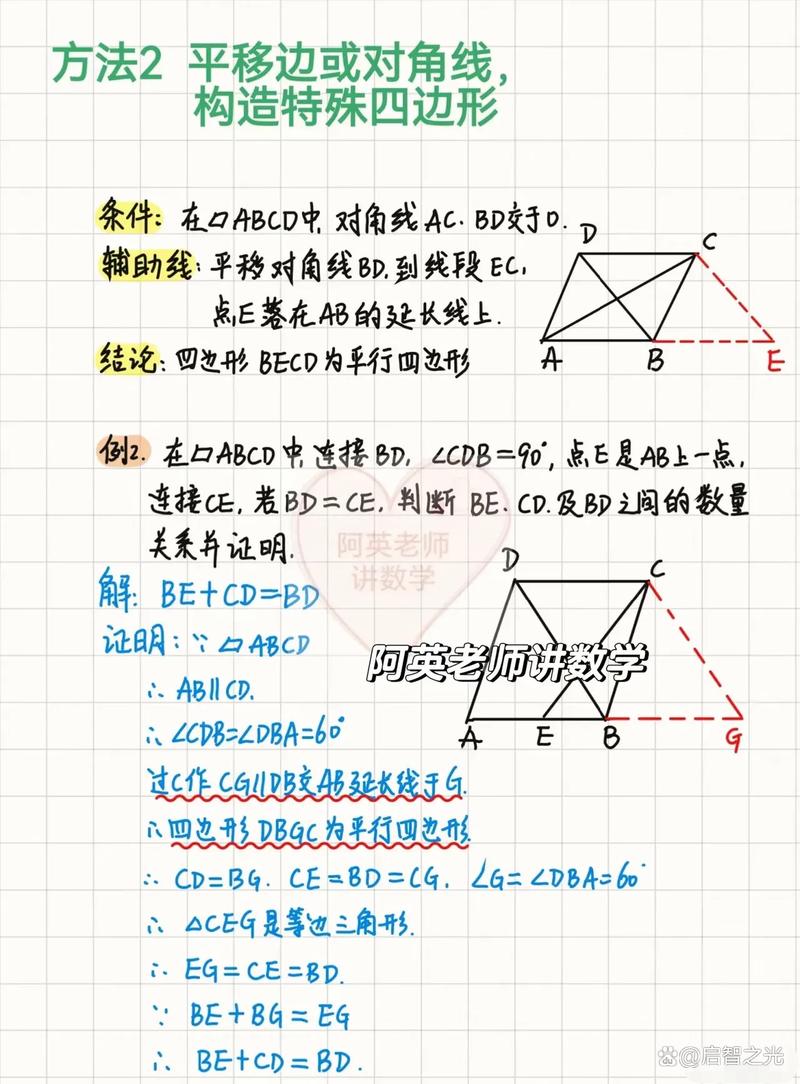 方法2 平移边或对角线，
构造特殊四边形
条件: 在▱ABCD中, 对角线AC. BD交于O.
辅助线: 平移对角线BD, 到线段EC,
点E落在AB的延长线上.
结论: 四边形BECD为平行四边形
D
C
A
B
E
例2. 在▱ABCD中, 连接BD, ∠CDB=90°, 点E是AB上一点,
连接CE, 若BD=CE, 判断BE. CD. 及BD之间的数量
关系并证明.
阿英老师
讲数学
解: BE+CD=BD
证明: ∵ ▱ABCD
∴ AB∥CD.
∴ ∠CDB=∠DBA=60°
过C作CG∥DB交AB延长线于G.
∴四边形DBGC为平行四边形
∴ CD=BG. CE=BD=CG. ∠G=∠DBA=60°
∴ △CEG是等边三角形.
∴ EG=CE=BD.
∵ BE+BG=EG
∴ BE+CD=BD.
D
C
阿英老师讲数学
A
E
B
G
@启智之光